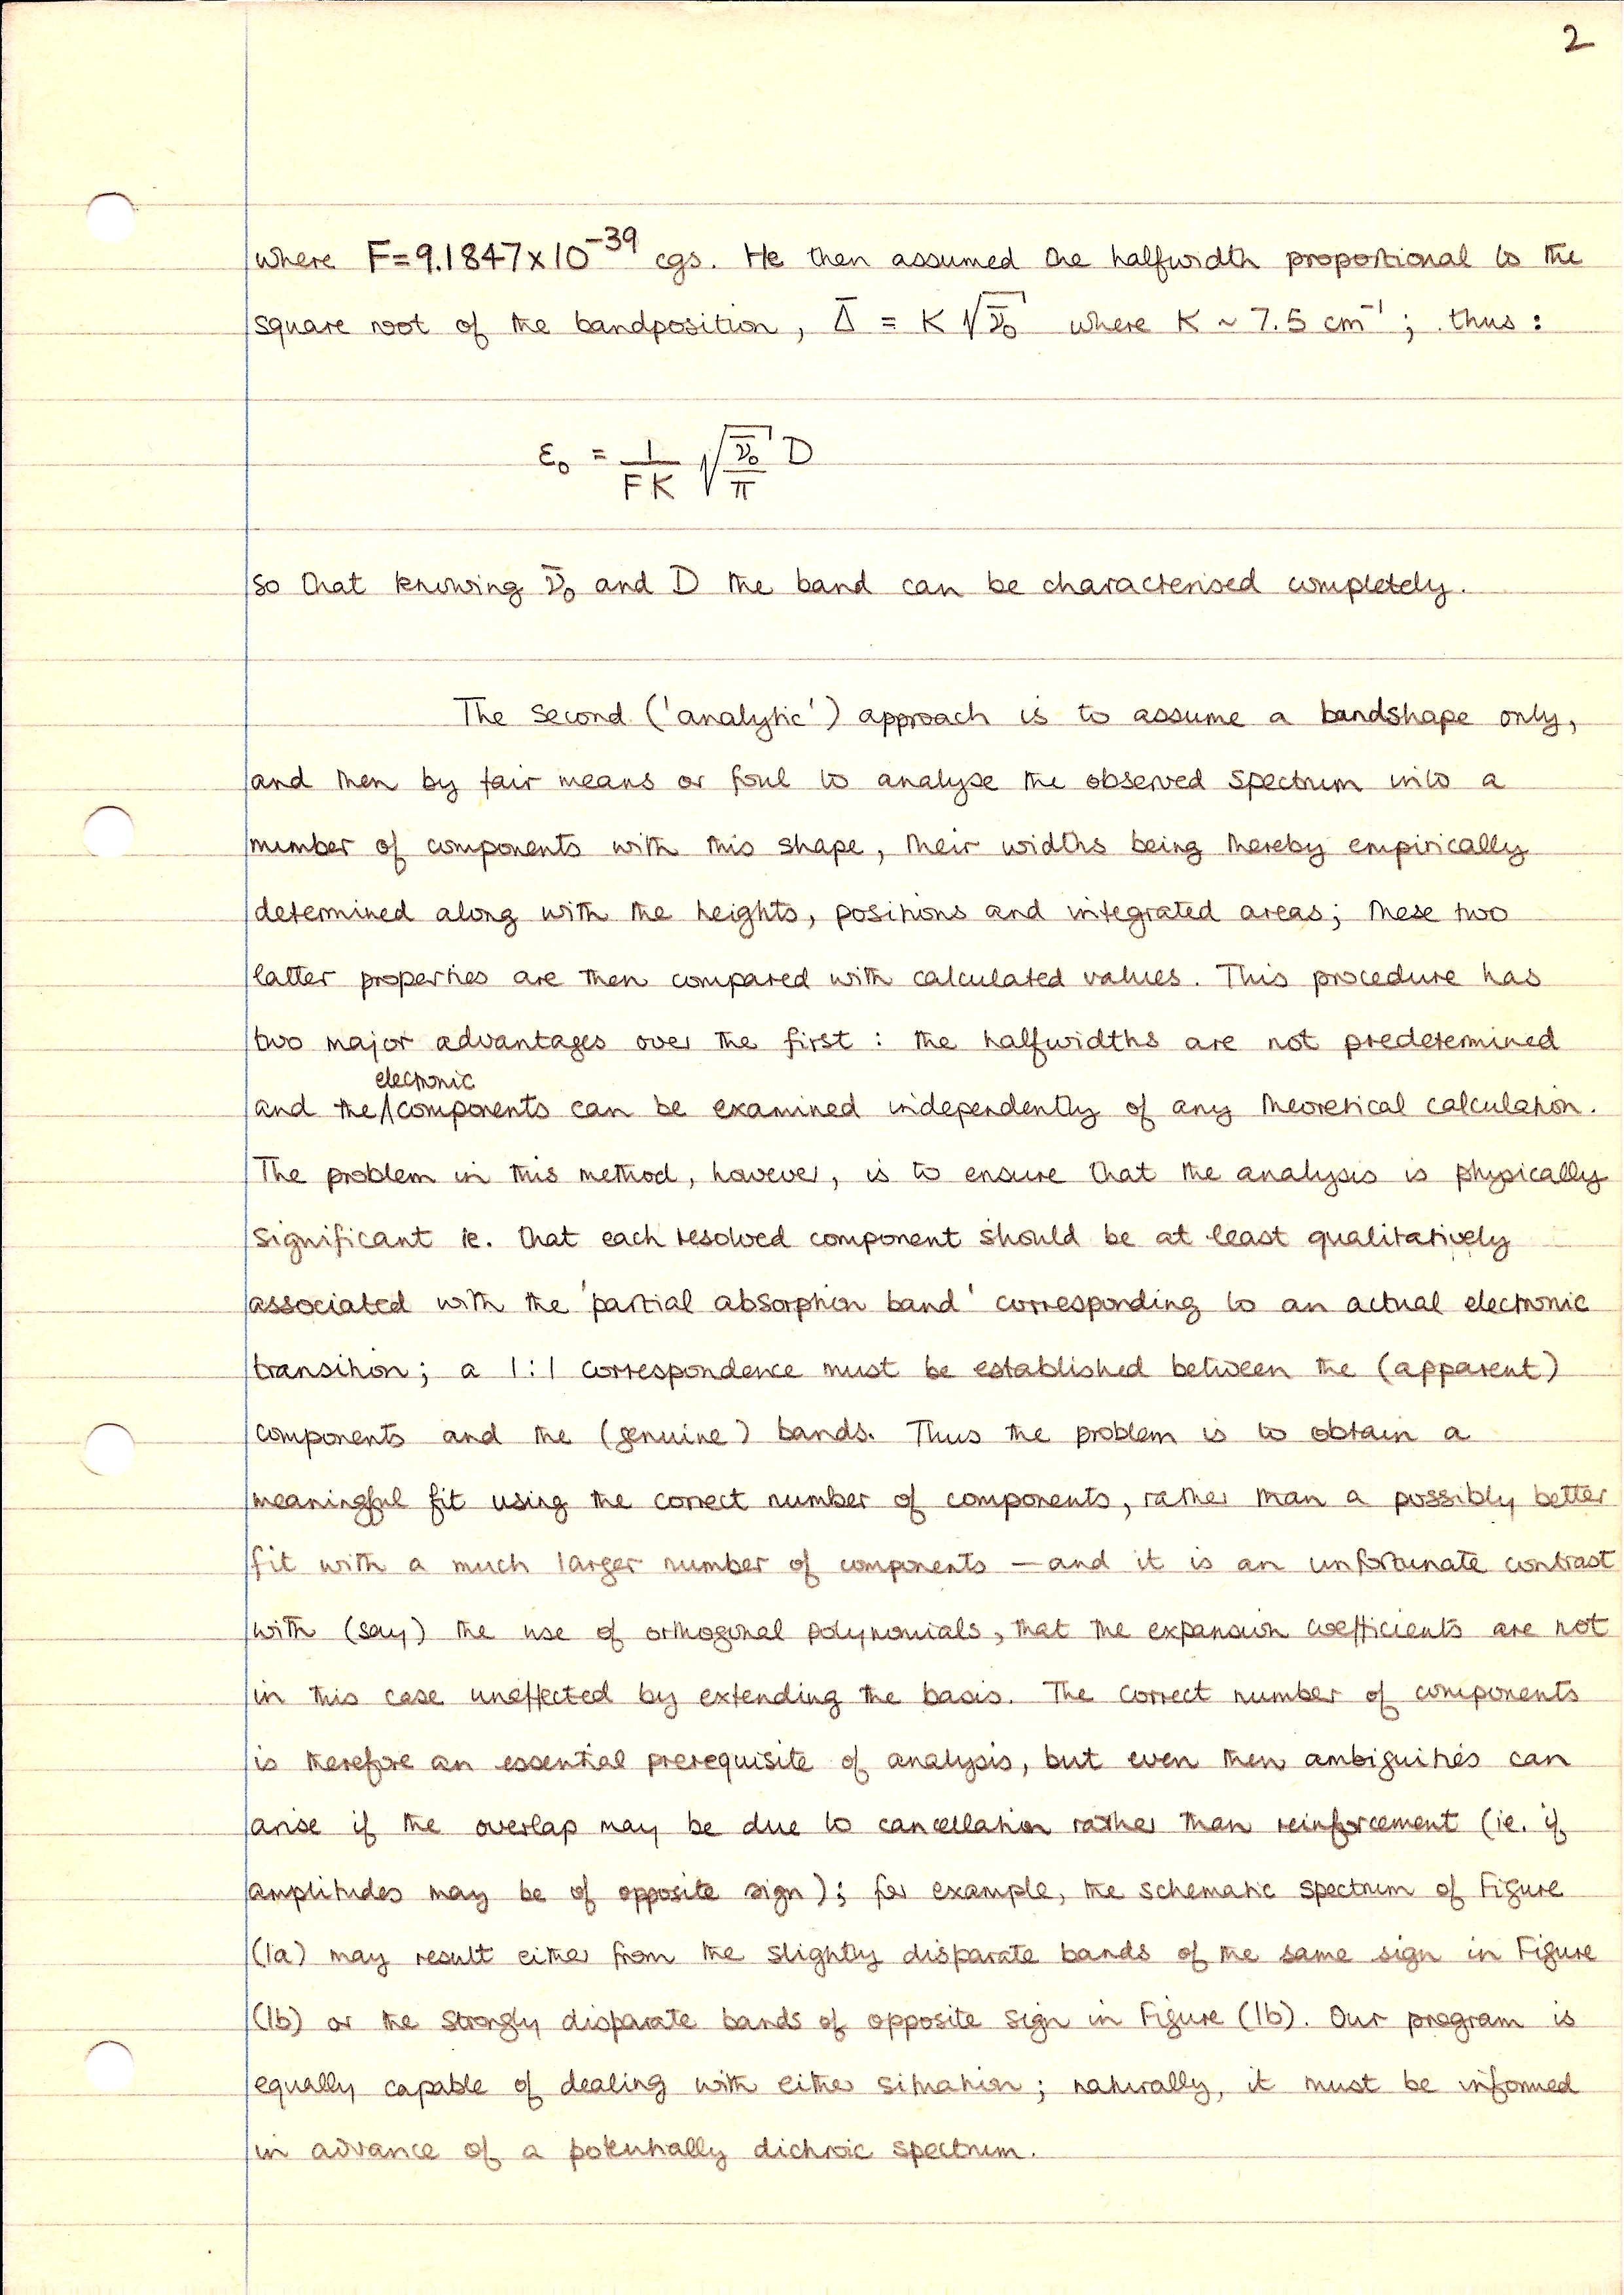 2
where F=9.1847×10⁻³⁹ cgs. He then assumed the halfwidth proportional to the
square root of the bandposition, Δ̄ = K √ν̄₀ where K ~ 7.5 cm⁻¹; thus:
ε₀ = 1/FK √(ν̄₀/π) D
so that knowing ν̄₀ and D the band can be characterised completely.
The second ('analytic') approach is to assume a bandshape only,
and then by fair means or foul to analyse the observed spectrum into a
number of components with this shape, their widths being thereby empirically
determined along with the heights, positions and integrated areas; these two
latter properties are then compared with calculated values. This procedure has
two major advantages over the first: the halfwidths are not predetermined
electronic
and the components can be examined independently of any theoretical calculation.
The problem in this method, however, is to ensure that the analysis is physically
significant ie. that each resolved component should be at least qualitatively
associated with the 'partial absorption band' corresponding to an actual electronic
transition; a 1:1 correspondence must be established between the (apparent)
components and the (genuine) bands. Thus the problem is to obtain a
meaningful fit using the correct number of components, rather than a possibly better
fit with a much larger number of components — and it is an unfortunate contrast
with (say) the use of orthogonal polynomials, that the expansion coefficients are not
in this case uneffected by extending the basis. The correct number of components
is therefore an essential prerequisite of analysis, but even then ambiguities can
arise if the overlap may be due to cancellation rather than reinforcement (ie. if
amplitudes may be of opposite sign); for example, the schematic spectrum of Figure
(1a) may result either from the slightly disparate bands of the same sign in Figure
(1b) or the strongly disparate bands of opposite sign in Figure (1b). Our program is
equally capable of dealing with either situation; naturally, it must be informed
in advance of a potentially dichroic spectrum.